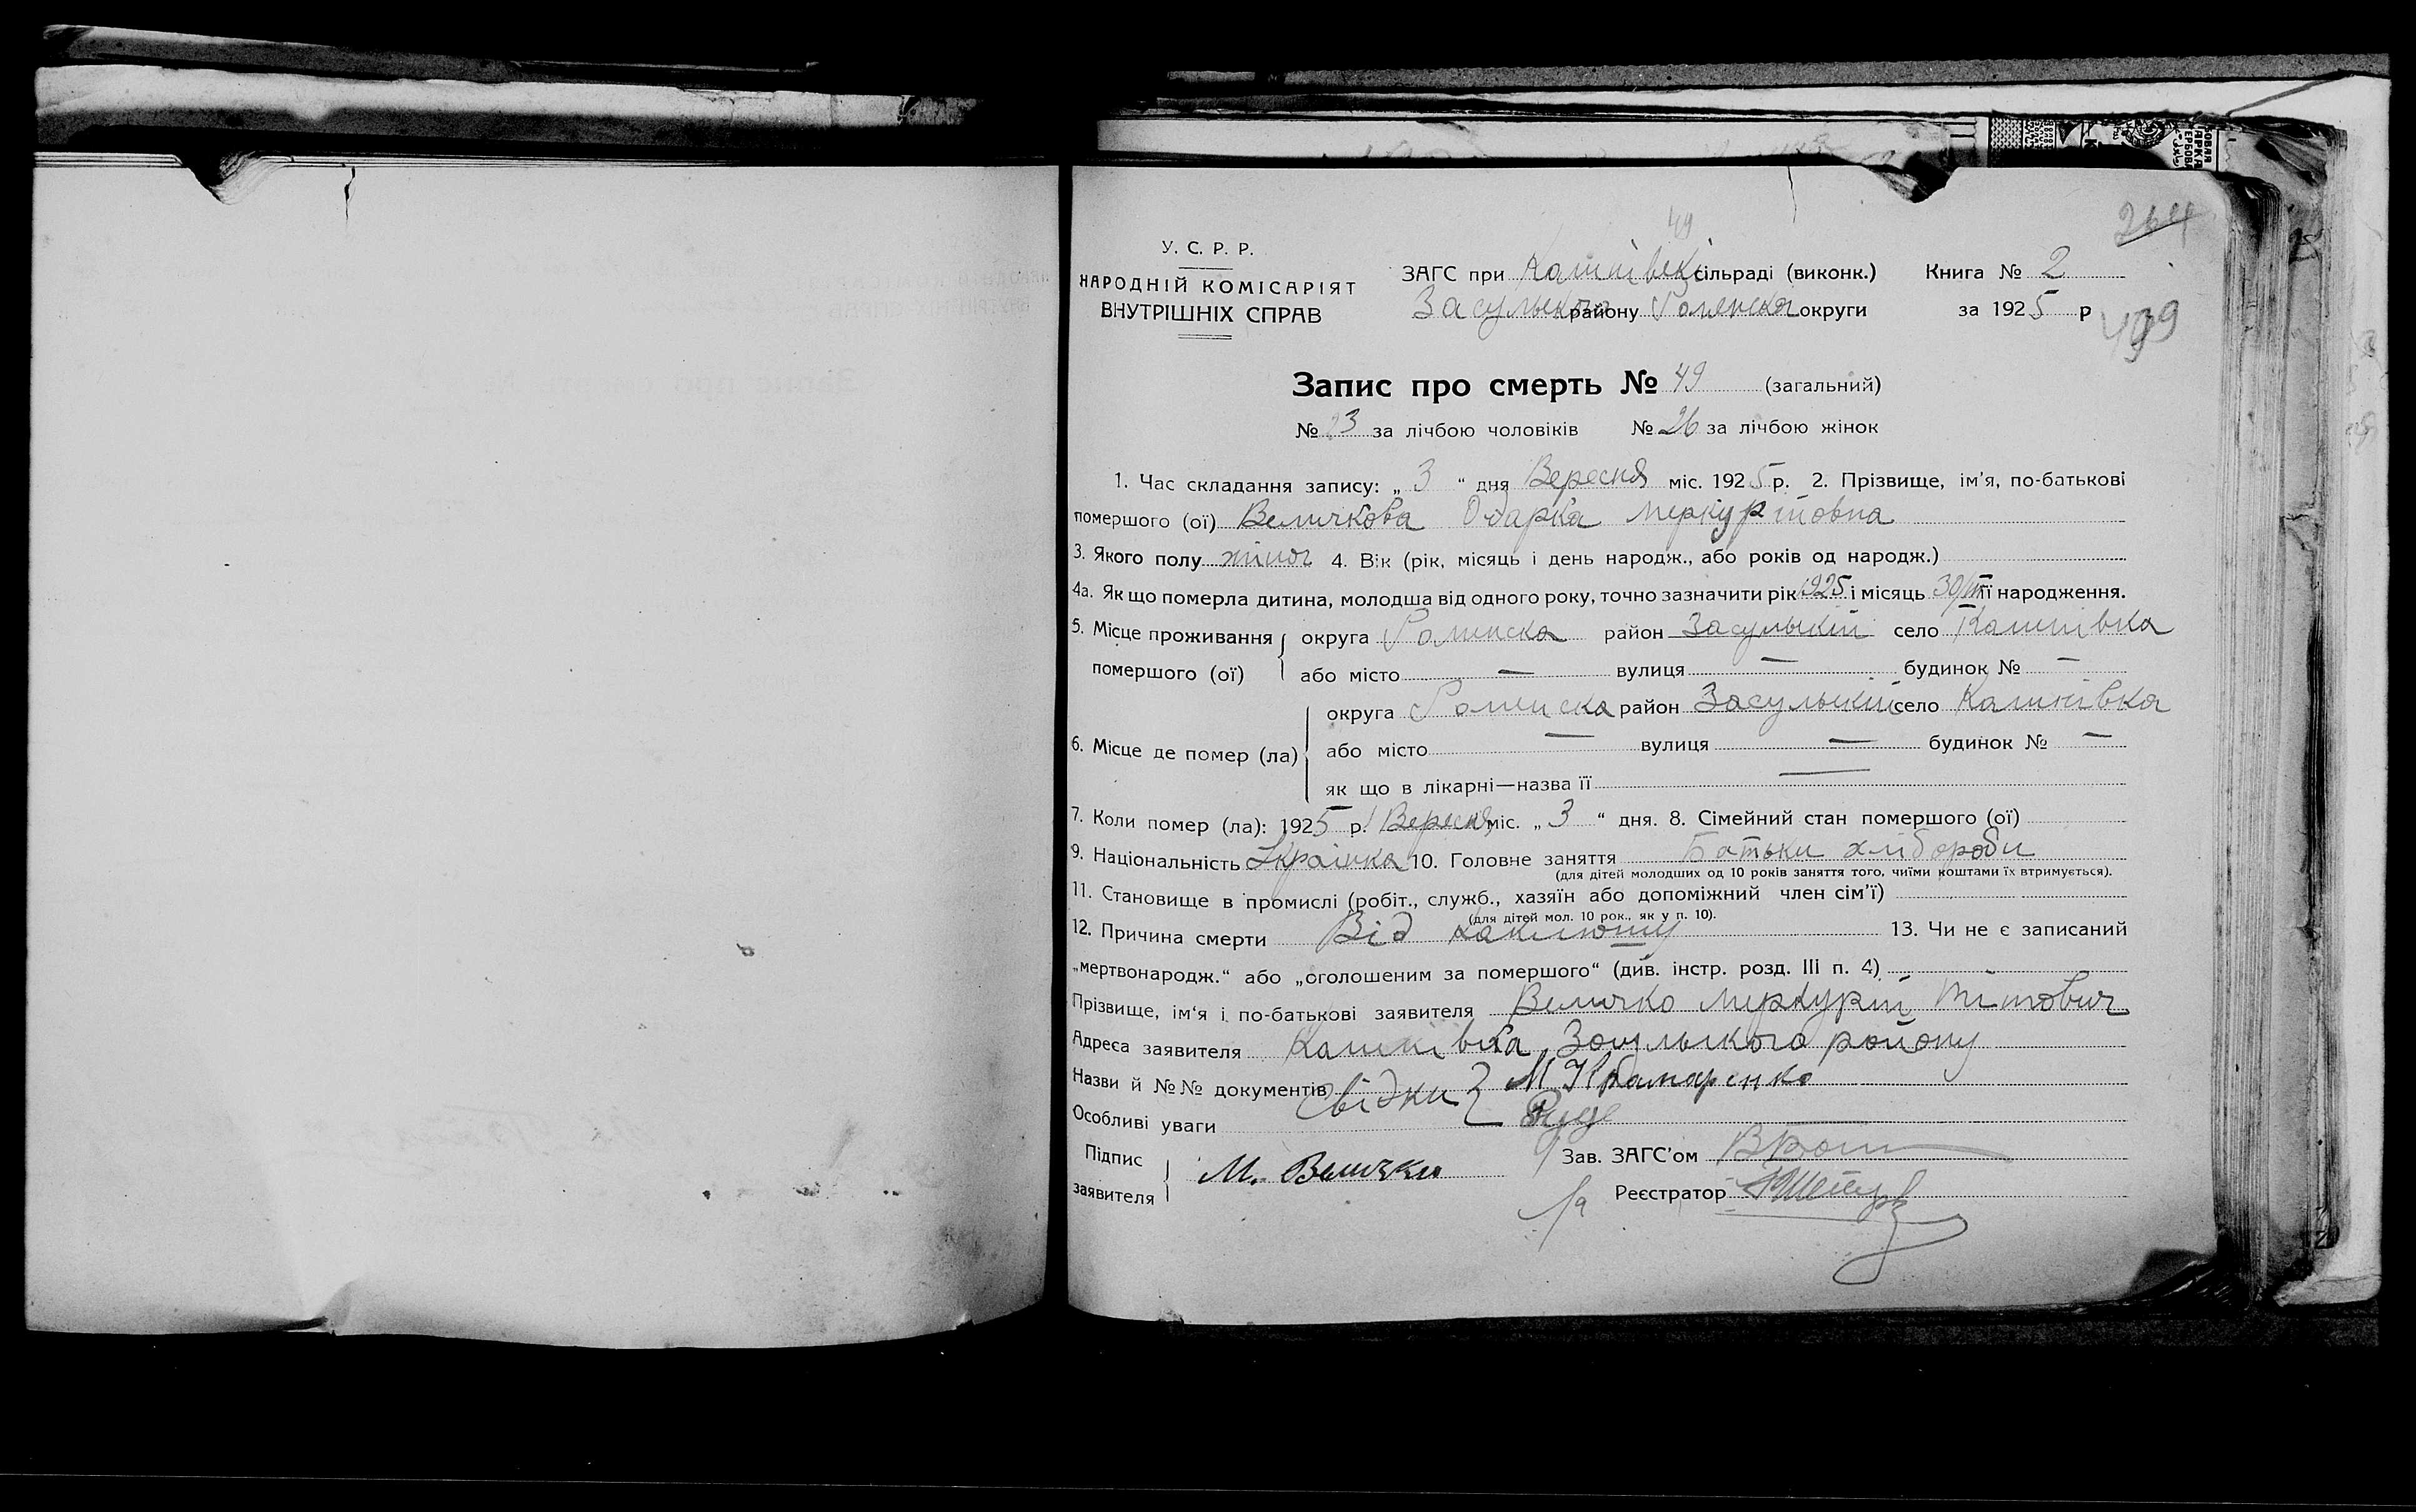 49
264
У. С. Р. Р.
НАРОДНІЙ КОМІСАРІЯТ
ВНУТРІШНІХ СПРАВ
ЗАГС при Калинівські сільраді (виконк.) Книга № 2
Засульского району Роменской округи за 1925 р
499
Запис про смерть № 49 (загальний)
№ 23 за лічбою чоловіків № 26 за лічбою жінок
1. Час складання запису: „ 3 “ дня Вересня міс. 1925 р. 2. Прізвище, ім’я, по-батькові
помершого (ої) Величкова Одарка Меркуріïовна
3. Якого полу жіноч 4. Вік (рік, місяць і день народж., або років од народж.)
4а. Як що померла дитина, молодша від одного року, точно зазначити рік 1925 і місяць 30/III її народження.
5. Місце проживання помершого (ої) округа Роминска район Засульскій село Калинівка
або місто — вулиця — будинок № —
6. Місце де помер (ла) округа Роминска район Засульскій село Калинівка
або місто — вулиця — будинок № —
як що в лікарні—назва її —
7. Коли помер (ла): 1925 р. Вересня міс. „ 3 “ дня. 8. Сімейний стан помершого (ої)
9. Національність Українка 10. Головне заняття Батьки хлібороби
(для дітей молодших од 10 років заняття того, чиїми коштами їх втримується).
11. Становище в промислі (робіт., служб., хазяїн або допоміжний член сім’ї)
(для дітей мол. 10 рок., як у п. 10).
12. Причина смерти Від каклюшу 13. Чи не є записаний
„мертвонародж.“ або „оголошеним за помершого“ (див. інстр. розд. III п. 4)
Прізвище, ім’я і по-батькові заявителя Величко Меркурій Тітович
Адреса заявителя Калинівка Засульского району
Назви й №№ документів Свідки М Крамаренко
Особливі уваги
Підпис заявителя М. Величко
Зав. ЗАГС’ом
Реєстратор